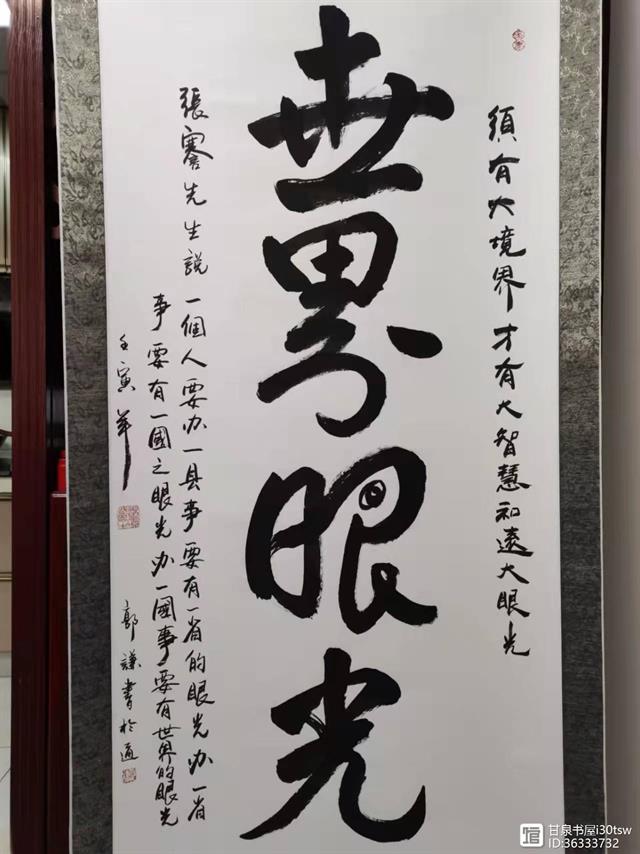 須有大境界才有大智慧和遠大眼光
世界眼光
張謇先生説一個人要办一县事要有一省的眼光办一省
事要有一國之眼光办一國事要有世界的眼光
壬寅年
郭謙書於通
甘泉书屋i30tsw
ID:36333732